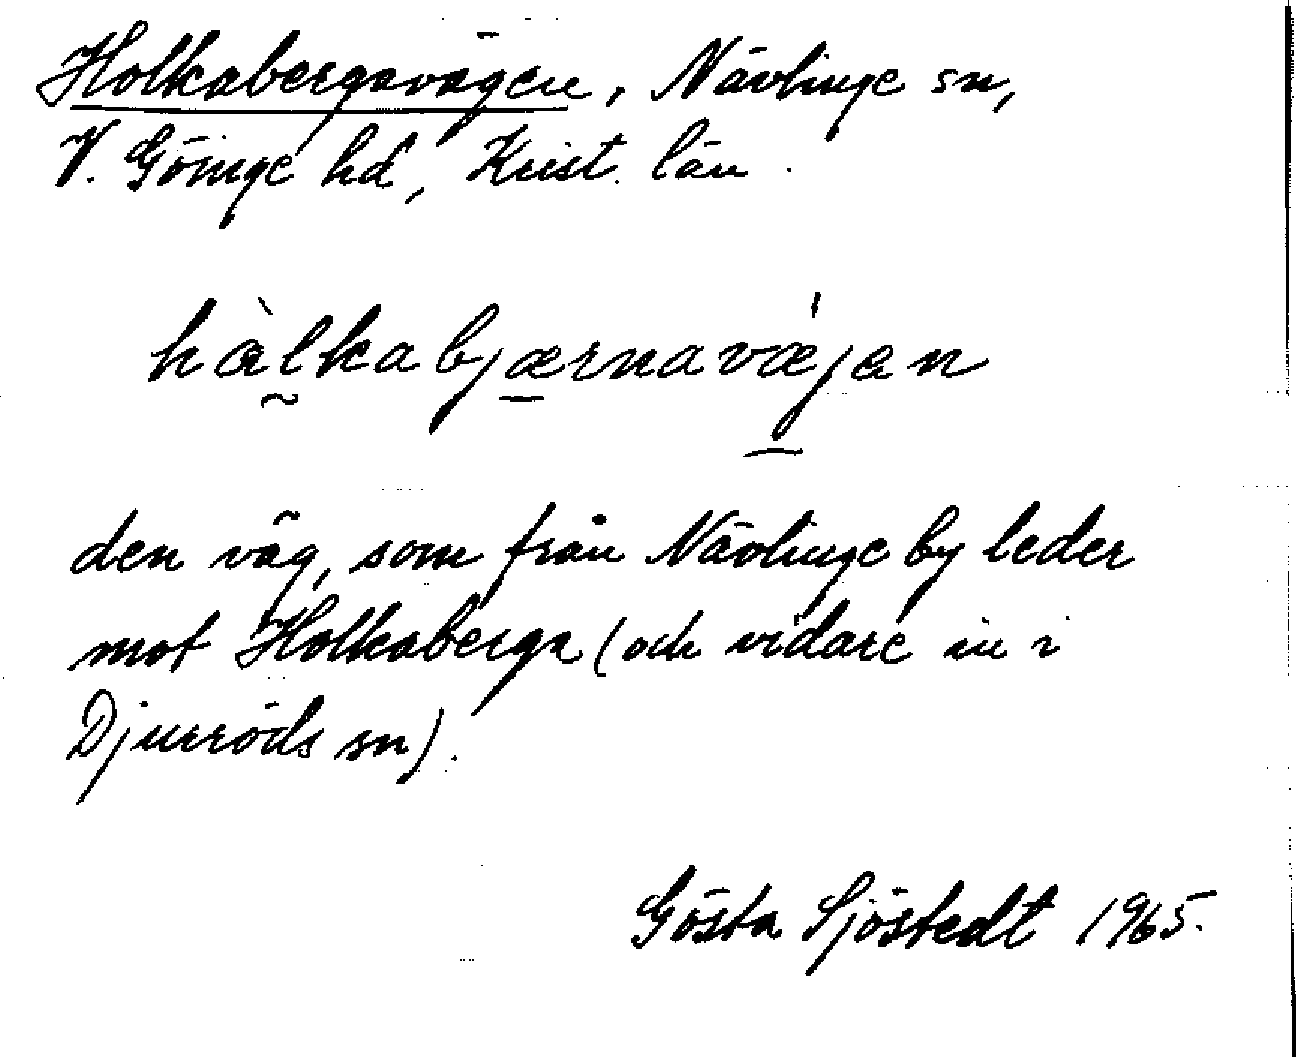 Holkabergavägen, Nävlinge sn,
V. Göinge hd, Krist. län.
hàlkabjærnavæ̍jen
den väg, som från Nävlinge by leder
mot Holkaberga (och vidare in i
Djurröds sn).
Gösta Sjöstedt 1965.